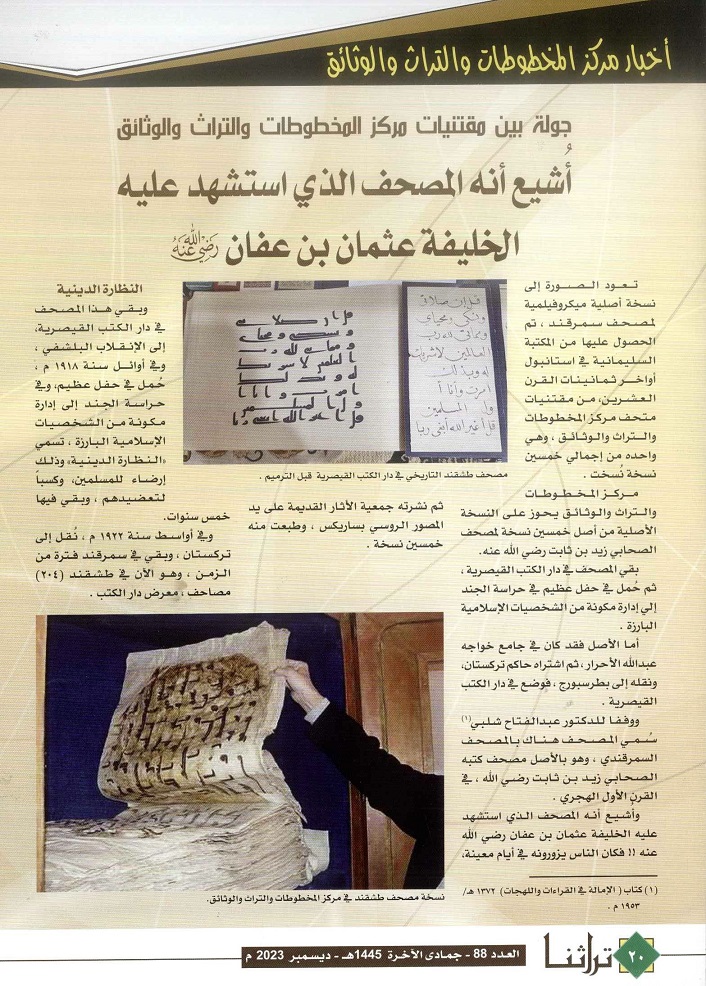 أخبار مركز المخطوطات والتراث والوثائق
جولة بين مقتنيات مركز المخطوطات والتراث والوثائق
أُشيع أنه المصحف الذي استشهد عليه
الخليفة عثمان بن عفان رضي الله عنه
تعود الصورة إلى
نسخة أصلية ميكروفيلمية
لمصحف سمرقند ، تم
الحصول عليها من المكتبة
السليمانية في استانبول
أواخر ثمانينات القرن
العشرين، من مقتنيات
متحف مركز المخطوطات
والتراث والوثائق ، وهي
واحده من إجمالي خمسين
نسخة نُسخت .
مركز المخطوطات
والتراث والوثائق يحوز على النسخة
الأصلية من أصل خمسين نسخة لمصحف
الصحابي زيد بن ثابت رضي الله عنه.
بقي المصحف في دار الكتب القيصرية ،
ثم حُمل في حفل عظيم في حراسة الجند
إلي إدارة مكونة من الشخصيات الإسلامية
البارزة .
أما الأصل فقد كان في جامع خواجه
عبدالله الأحرار ، ثم اشتراه حاكم تركستان،
ونقله إلى بطرسبورج، فوضع في دار الكتب
القيصرية .
ووفقا للدكتور عبدالفتاح شلبي(١)
سُمي المصحف هناك بالمصحف
السمرقندي ، وهو بالأصل مصحف كتبه
الصحابي زيد بن ثابت رضي الله ، في
القرن الأول الهجري .
وأشيع أنه المصحف الذي استشهد
عليه الخليفة عثمان بن عفان رضي الله
عنه !! فكان الناس يزورونه في أيام معينة،
(١) كتاب ( الإمالة في القراءات واللهجات) ١٣٧٢ هـ/
١٩٥٣ م .
قل إن صلاتي
ونسكي ومحياي
ومماتي لله رب
العالمين لا شريك
له وبذلك
أمرت وأنا أ
ول المسلمين
قل أغير الله أبغي ربا
مصحف طشقند التاريخي في دار الكتب القيصرية قبل الترميم .
ثم نشرته جمعية الأثار القديمة على يد
المصور الروسي بساريكس ، وطبعت منه
خمسين نسخة .
نسخة مصحف طشقند في مركز المخطوطات والتراث والوثائق.
النظارة الدينية
وبقي هذا المصحف
في دار الكتب القيصرية،
إلى الإنقلاب البلشفي ،
وفي أوائل سنة ١٩١٨ م ،
حُمل في حفل عظيم، وفي
حراسة الجند إلى إدارة
مكونة من الشخصيات
الإسلامية البارزة ، تسمي
«النظارة الدينية» وذلك
إرضاء للمسلمين، وكسباً
لتعضيدهم ، وبقي فيها
خمس سنوات.
وفي أواسط سنة ١٩٢٢ م ، نُقل إلى
تركستان ، وبقي في سمرقند فترة من
الزمن ، وهو الآن في طشقند (٢٠٤)
مصاحف ، معرض دار الكتب .
٢٠
تراثنا
العدد 88 - جمادى الآخرة 1445هـ - ديسمبر 2023 م